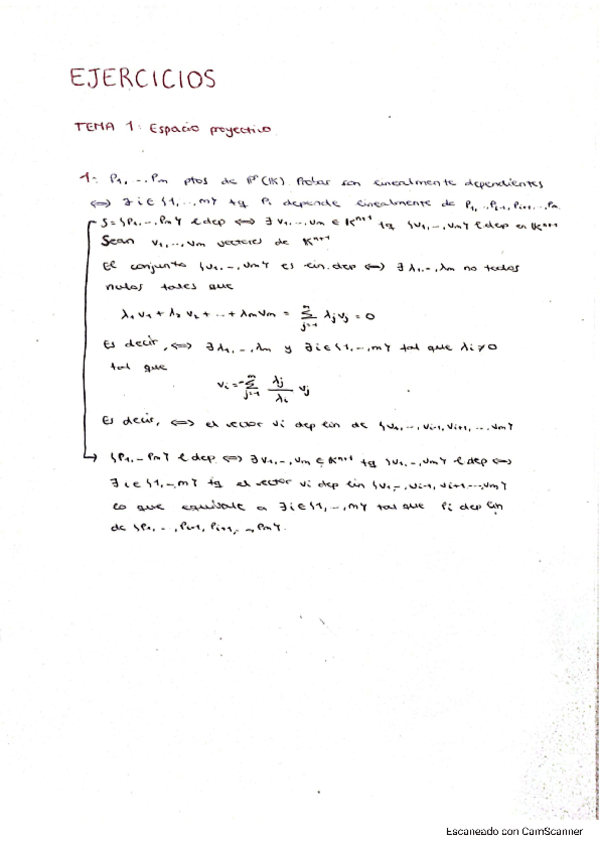 EJERCICIOS
TEMA 1: Espacio proyectivo
1: P1, ..., Pm ptos de Pⁿ(K). Probar son linealmente dependientes
⟺ ∃ i ∈ {1, .., m} tq Pi depende linealmente de P1, .., Pi-1, Pi+1, .., Pm
S = {P1, .., Pm} l dep ⟺ ∃ v1, .., vm ∈ Kⁿ⁺¹ tq {v1, .., vm} l dep en Kⁿ⁺¹
Sean v1, .., vm vectores de Kⁿ⁺¹
El conjunto {v1, .., vm} es lin. dep ⟺ ∃ λ1, .., λm no todos
nulos tales que
λ1 v1 + λ2 v2 + ... + λm vm = ∑_{j=1}^{m} λj vj = 0
Es decir, ⟺ ∃ λ1, .., λm y ∃ i ∈ {1, .., m} tal que λi ≠ 0
tal que
vi = -∑_{j=1}^{m} λj/λi vj
Es decir, ⟺ el vector vi dep lin de {v1, .., vi-1, vi+1, ..., vm}
{P1, .. Pm} l dep ⟺ ∃ v1, .., vm ∈ Kⁿ⁺¹ tq {v1, .., vm} l dep ⟺
∃ i ∈ {1, .., m} tq el vector vi dep lin {v1, .., vi-1, vi+1, ..., vm}
lo que equivale a ∃ i ∈ {1, .., m} tal que Pi dep lin
de {P1, .., Pi-1, Pi+1, .., Pm}.
Escaneado con CamScanner